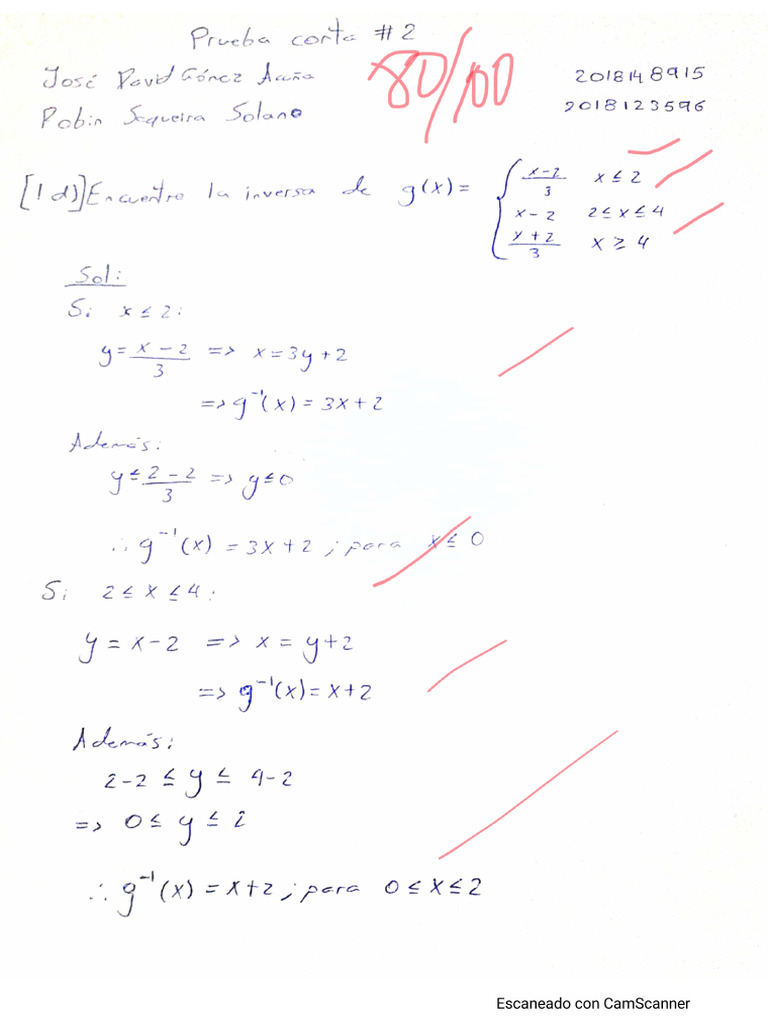 Prueba corta #2
José David Gómez Acuña 80/100 2018148915
Robin Sequeira Solano 2018123596
[1d)] Encuentre la inversa de g(x) = { x-2/3 x ≤ 2
x-2 2 ≤ x ≤ 4
x+2/3 x ≥ 4
Sol:
Si x ≤ 2:
y = x-2/3 => x = 3y+2
=> g⁻¹(x) = 3x+2
Además:
y ≤ 2-2/3 => y ≤ 0
∴ g⁻¹(x) = 3x+2 ; para x ≤ 0
Si 2 ≤ x ≤ 4:
y = x-2 => x = y+2
=> g⁻¹(x) = x+2
Además:
2-2 ≤ y ≤ 4-2
=> 0 ≤ y ≤ 2
∴ g⁻¹(x) = x+2 ; para 0 ≤ x ≤ 2
Escaneado con CamScanner